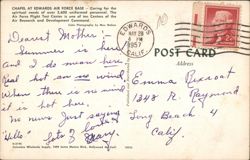 CHAPEL AT EDWARDS AIR FORCE BASE - Caring for the
spiritual needs of over 3,600 uniformed personnel. The
Air Force Flight Test Center is one of ten Centers of the
Air Research and Development Command.
Dearest Mother -
Summer is here
and I do mean here,
real hot an no wind
When there is no wind
it is hot here.
No news. Just saying
"Hello"
Lots
love
EDWARDS
MAY 28
6 PM
1957
CALIF.
POST CARD
Address
Emma Rexroat
1348 M. Raymond
Long Beach 4
Calif.